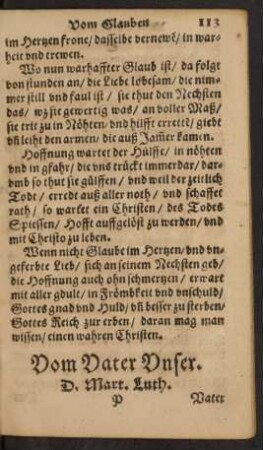 Vom Glauben 113
im Hertzen frone/ dasselbe vernewẽ/ in war-
heit vnd trewen.
Wo nun warhaffter Glaub ist/ da folgt
von stunden an/ die Liebe lobesam/ die nim-
mer still vnd faul ist/ sie thut den Nechsten
das/ wz sie gewertig was/ an voller Maß/
sie trit zu in Nöhten/ vnd hilfft errettẽ/ giebt
vñ leiht den armen/ die auß Jam̃er kamen.
Hoffnung wartet der Hülffe/ in nöhten
vnd in gfahr/ die vns trückt immerdar/ dar-
vmb so thut sie gülffen/ vnd weil der zeitlich
Todt/ erredt auß aller noth/ vnd schaffet
rath/ so wartet ein Christen/ des Todes
Spiessen/ Hofft auffgelöst zu werden/ vnd
mit Christo zu leben.
Wenn nicht Glaube im Hertzen/ vnd vn-
geferbte Lieb/ sich an seinem Nechsten geb/
die Hoffnung auch ohn schmertzen/ erwart
mit aller gdult/ in Frömbkeit vnd vnschuld/
Gottes gnad vnd Huld/ vñ besser zu sterben/
Gottes Reich zur erben/ daran mag man
wissen/ einen wahren Christen.
Vom Vater Vnser.
D. Mart. Luth.
P Vater